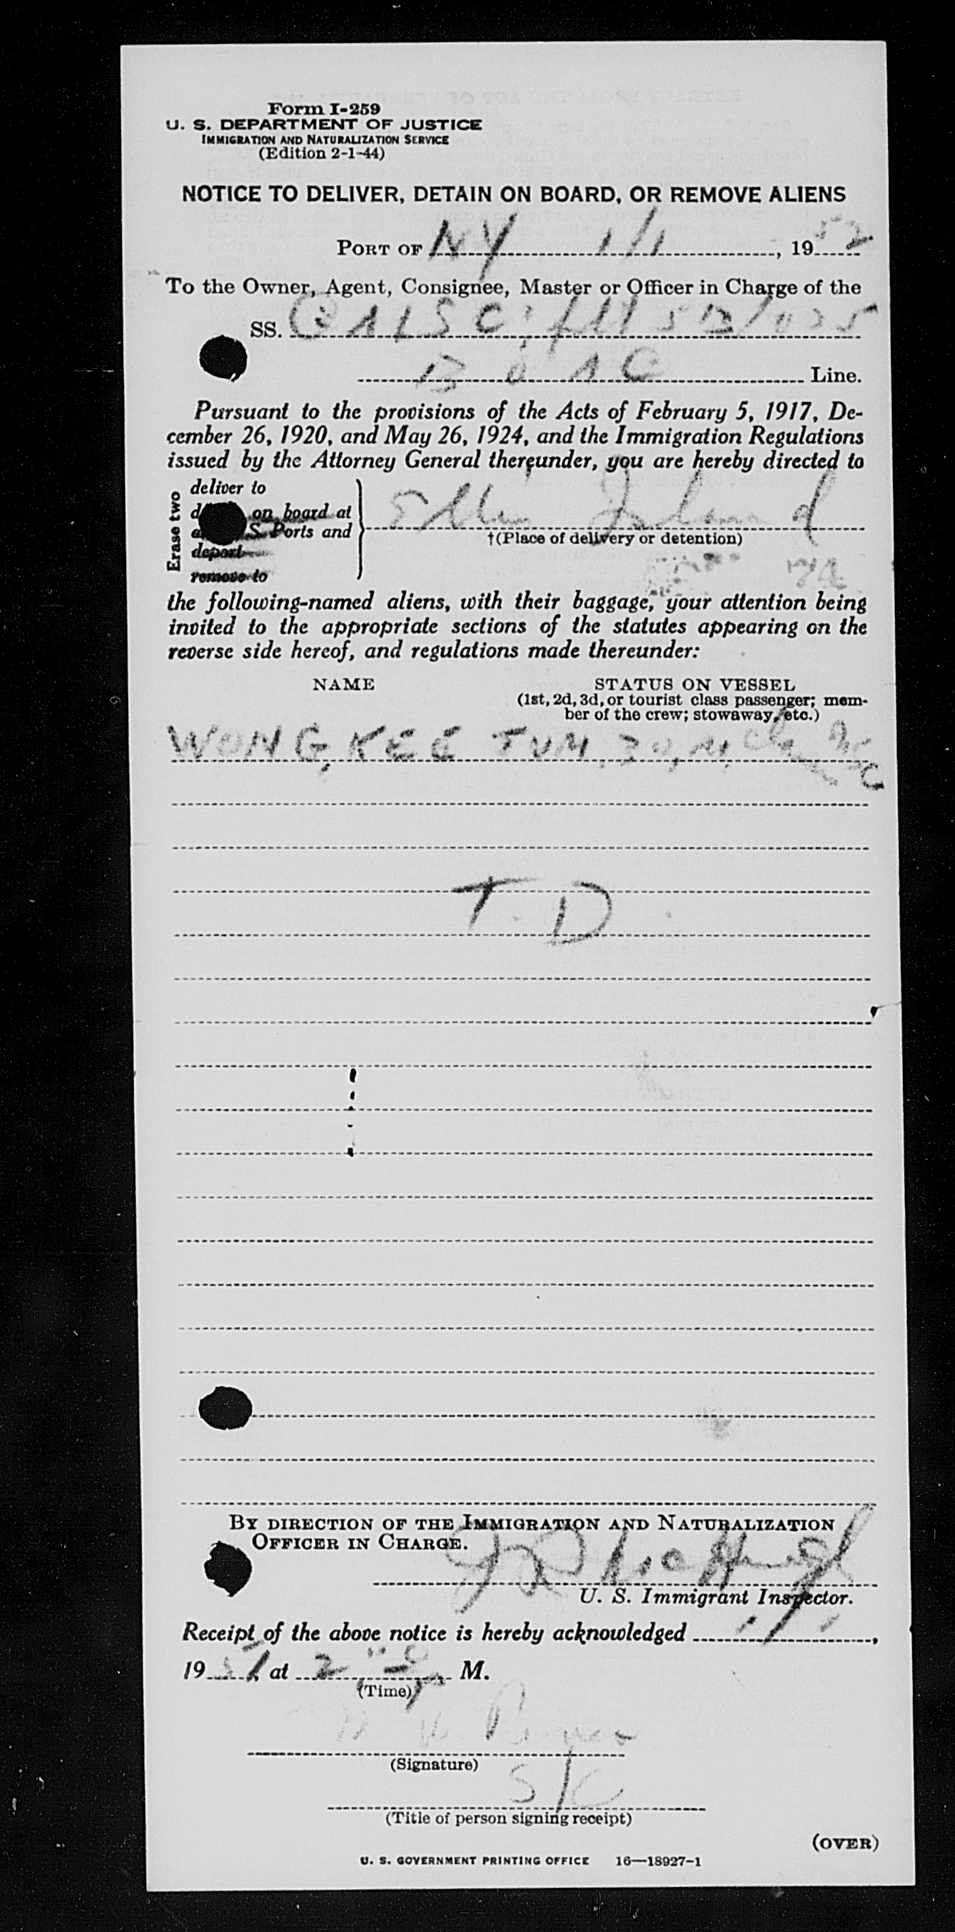 Form I-259
U. S. DEPARTMENT OF JUSTICE
IMMIGRATION AND NATURALIZATION SERVICE
(Edition 2-1-44)
NOTICE TO DELIVER, DETAIN ON BOARD, OR REMOVE ALIENS
PORT OF NY 1/1, 1952
To the Owner, Agent, Consignee, Master or Officer in Charge of the
SS.
B O A C Line.
Pursuant to the provisions of the Acts of February 5, 1917, De-
cember 26, 1920, and May 26, 1924, and the Immigration Regulations
issued by the Attorney General thereunder, you are hereby directed to
Erase two
deliver to
on board at
S. Ports and
deport
remove to
Ellis Island
†(Place of delivery or detention)
the following-named aliens, with their baggage, your attention being
invited to the appropriate sections of the statutes appearing on the
reverse side hereof, and regulations made thereunder:
NAME STATUS ON VESSEL
(1st, 2d, 3d, or tourist class passenger; mem-
ber of the crew; stowaway, etc.)
WONG, KEE TUM, 30, M,
T. D
BY DIRECTION OF THE IMMIGRATION AND NATURALIZATION
OFFICER IN CHARGE.
U. S. Immigrant Inspector.
Receipt of the above notice is hereby acknowledged 1/1,
19 at M.
(Time)
(Signature)
(Title of person signing receipt)
(OVER)
U. S. GOVERNMENT PRINTING OFFICE 16—18927-1